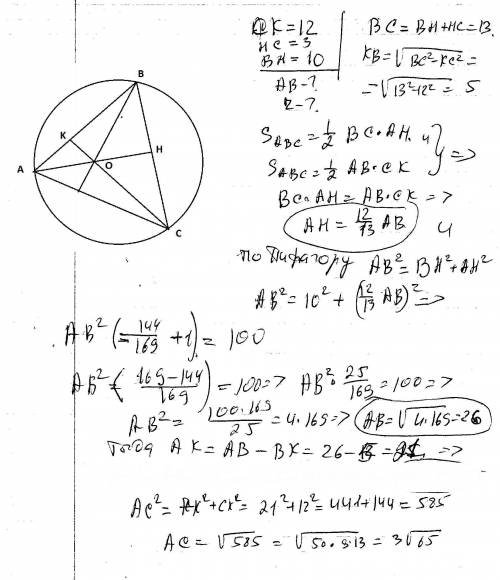 CK = 12
HC = 3
BH = 10
AB - ?
r - ?
BC = BH + HC = 13.
KB = √BC² - KC² =
= √13² - 12² = 5
B
K
O
H
A
C
S ABC = 1/2 BC · AH. и
S ABC = 1/2 AB · CK } =>
BC · AH = AB · CK =>
AH = 12/13 AB. и
по Пифагору AB² = BH² + AH²
AB² = 10² + (12/13 AB)² =>
AB² (- 144/169 + 1) = 100
AB² = (169 - 144/169) = 100 => AB² · 25/169 = 100 =>
AB² = 100 · 169/25 = 4 · 169 => AB = √4 · 169 = 26
тогда AK = AB - BK = 26 - 5 = 21 =>
AC² = AK² + CK² = 21² + 12² = 441 + 144 = 585
AC = √585 = √50 · 9 · 13 = 3√65